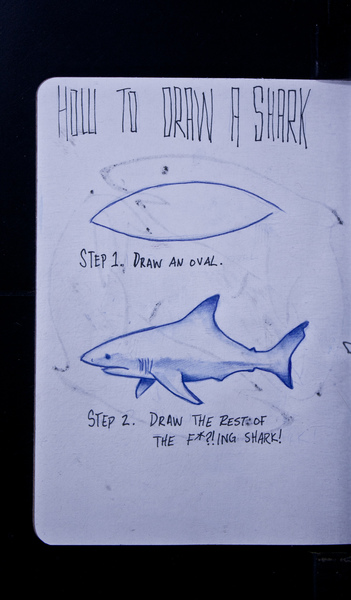 HOW TO DRAW A SHARK
STEP 1. DRAW AN OVAL.
STEP 2. DRAW THE REST OF
THE F*?!ING SHARK!